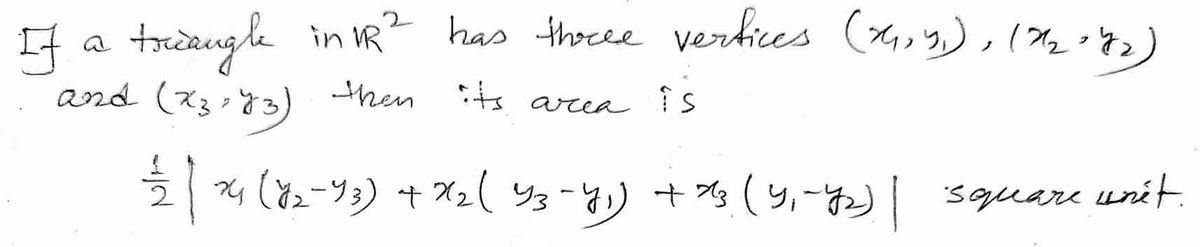 If a triangle in ℝ² has three vertices (x₁, y₁), (x₂, y₂)
and (x₃, y₃) then its area is
½ | x₁ (y₂-y₃) + x₂ ( y₃-y₁) + x₃ (y₁-y₂) | square unit.